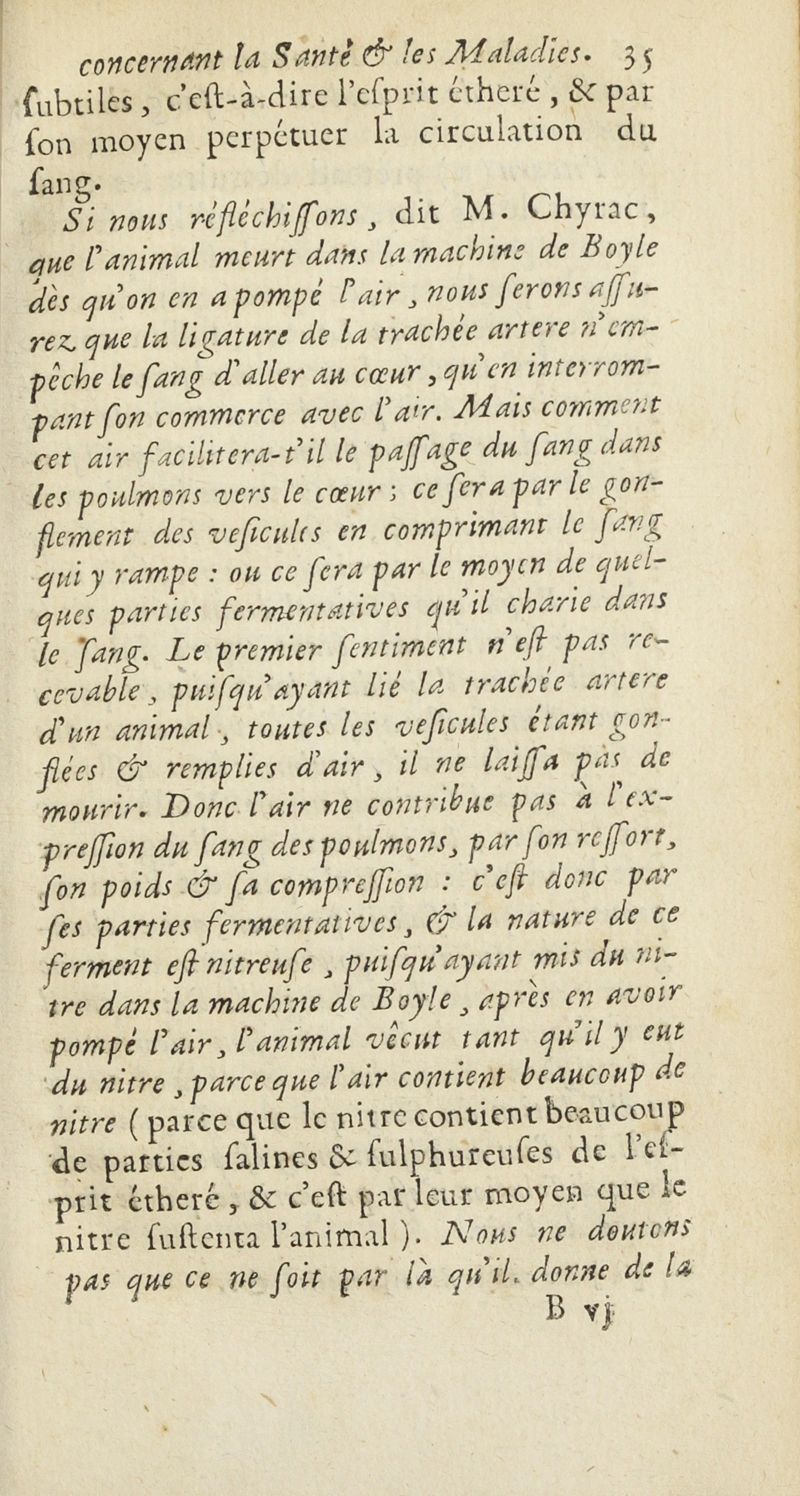 concernant la Santé & les Maladies. 35
ſubtiles, c'eſt-à-dire l'eſprit étheré, & par
ſon moyen perpétuer la circulation du
ſang.
Si nous réfléchiſſons, dit M. Chyrac,
que l'animal meurt dans la machine de Boyle
dès qu'on en a pompé l'air, nous ſerons aſſu-
rez que la ligature de la trachée artere n'em-
pêche le ſang d'aller au cœur, qu'en interrom-
pant ſon commerce avec l'air. Mais comment
cet air facilitera-t'il le paſſage du ſang dans
les poulmons vers le cœur; ce ſera par le gon-
flement des veſicules en comprimant le ſang
qui y rampe : ou ce ſera par le moyen de quel-
ques parties fermentatives qu'il charie dans
le ſang. Le premier ſentiment n'eſt pas re-
cevable, puiſqu'ayant lié la trachée artere
d'un animal, toutes les veſicules étant gon-
flées & remplies d'air, il ne laiſſa pas de
mourir. Donc l'air ne contribue pas à l'ex-
preſſion du ſang des poulmons, par ſon reſſort,
ſon poids & ſa compreſſion : c'eſt donc par
ſes parties fermentatives, & la nature de ce
ferment eſt nitreuſe, puiſqu'ayant mis du ni-
tre dans la machine de Boyle, après en avoir
pompé l'air, l'animal vêcut tant qu'il y eut
du nitre, parce que l'air contient beaucoup de
nitre (parce que le nitre contient beaucoup
de parties ſalines & ſulphureuſes de l'eſ-
prit étheré, & c'eſt par leur moyen que le
nitre ſuſtenta l'animal). Nous ne doutons
pas que ce ne ſoit par là qu'il donne de la
B vj